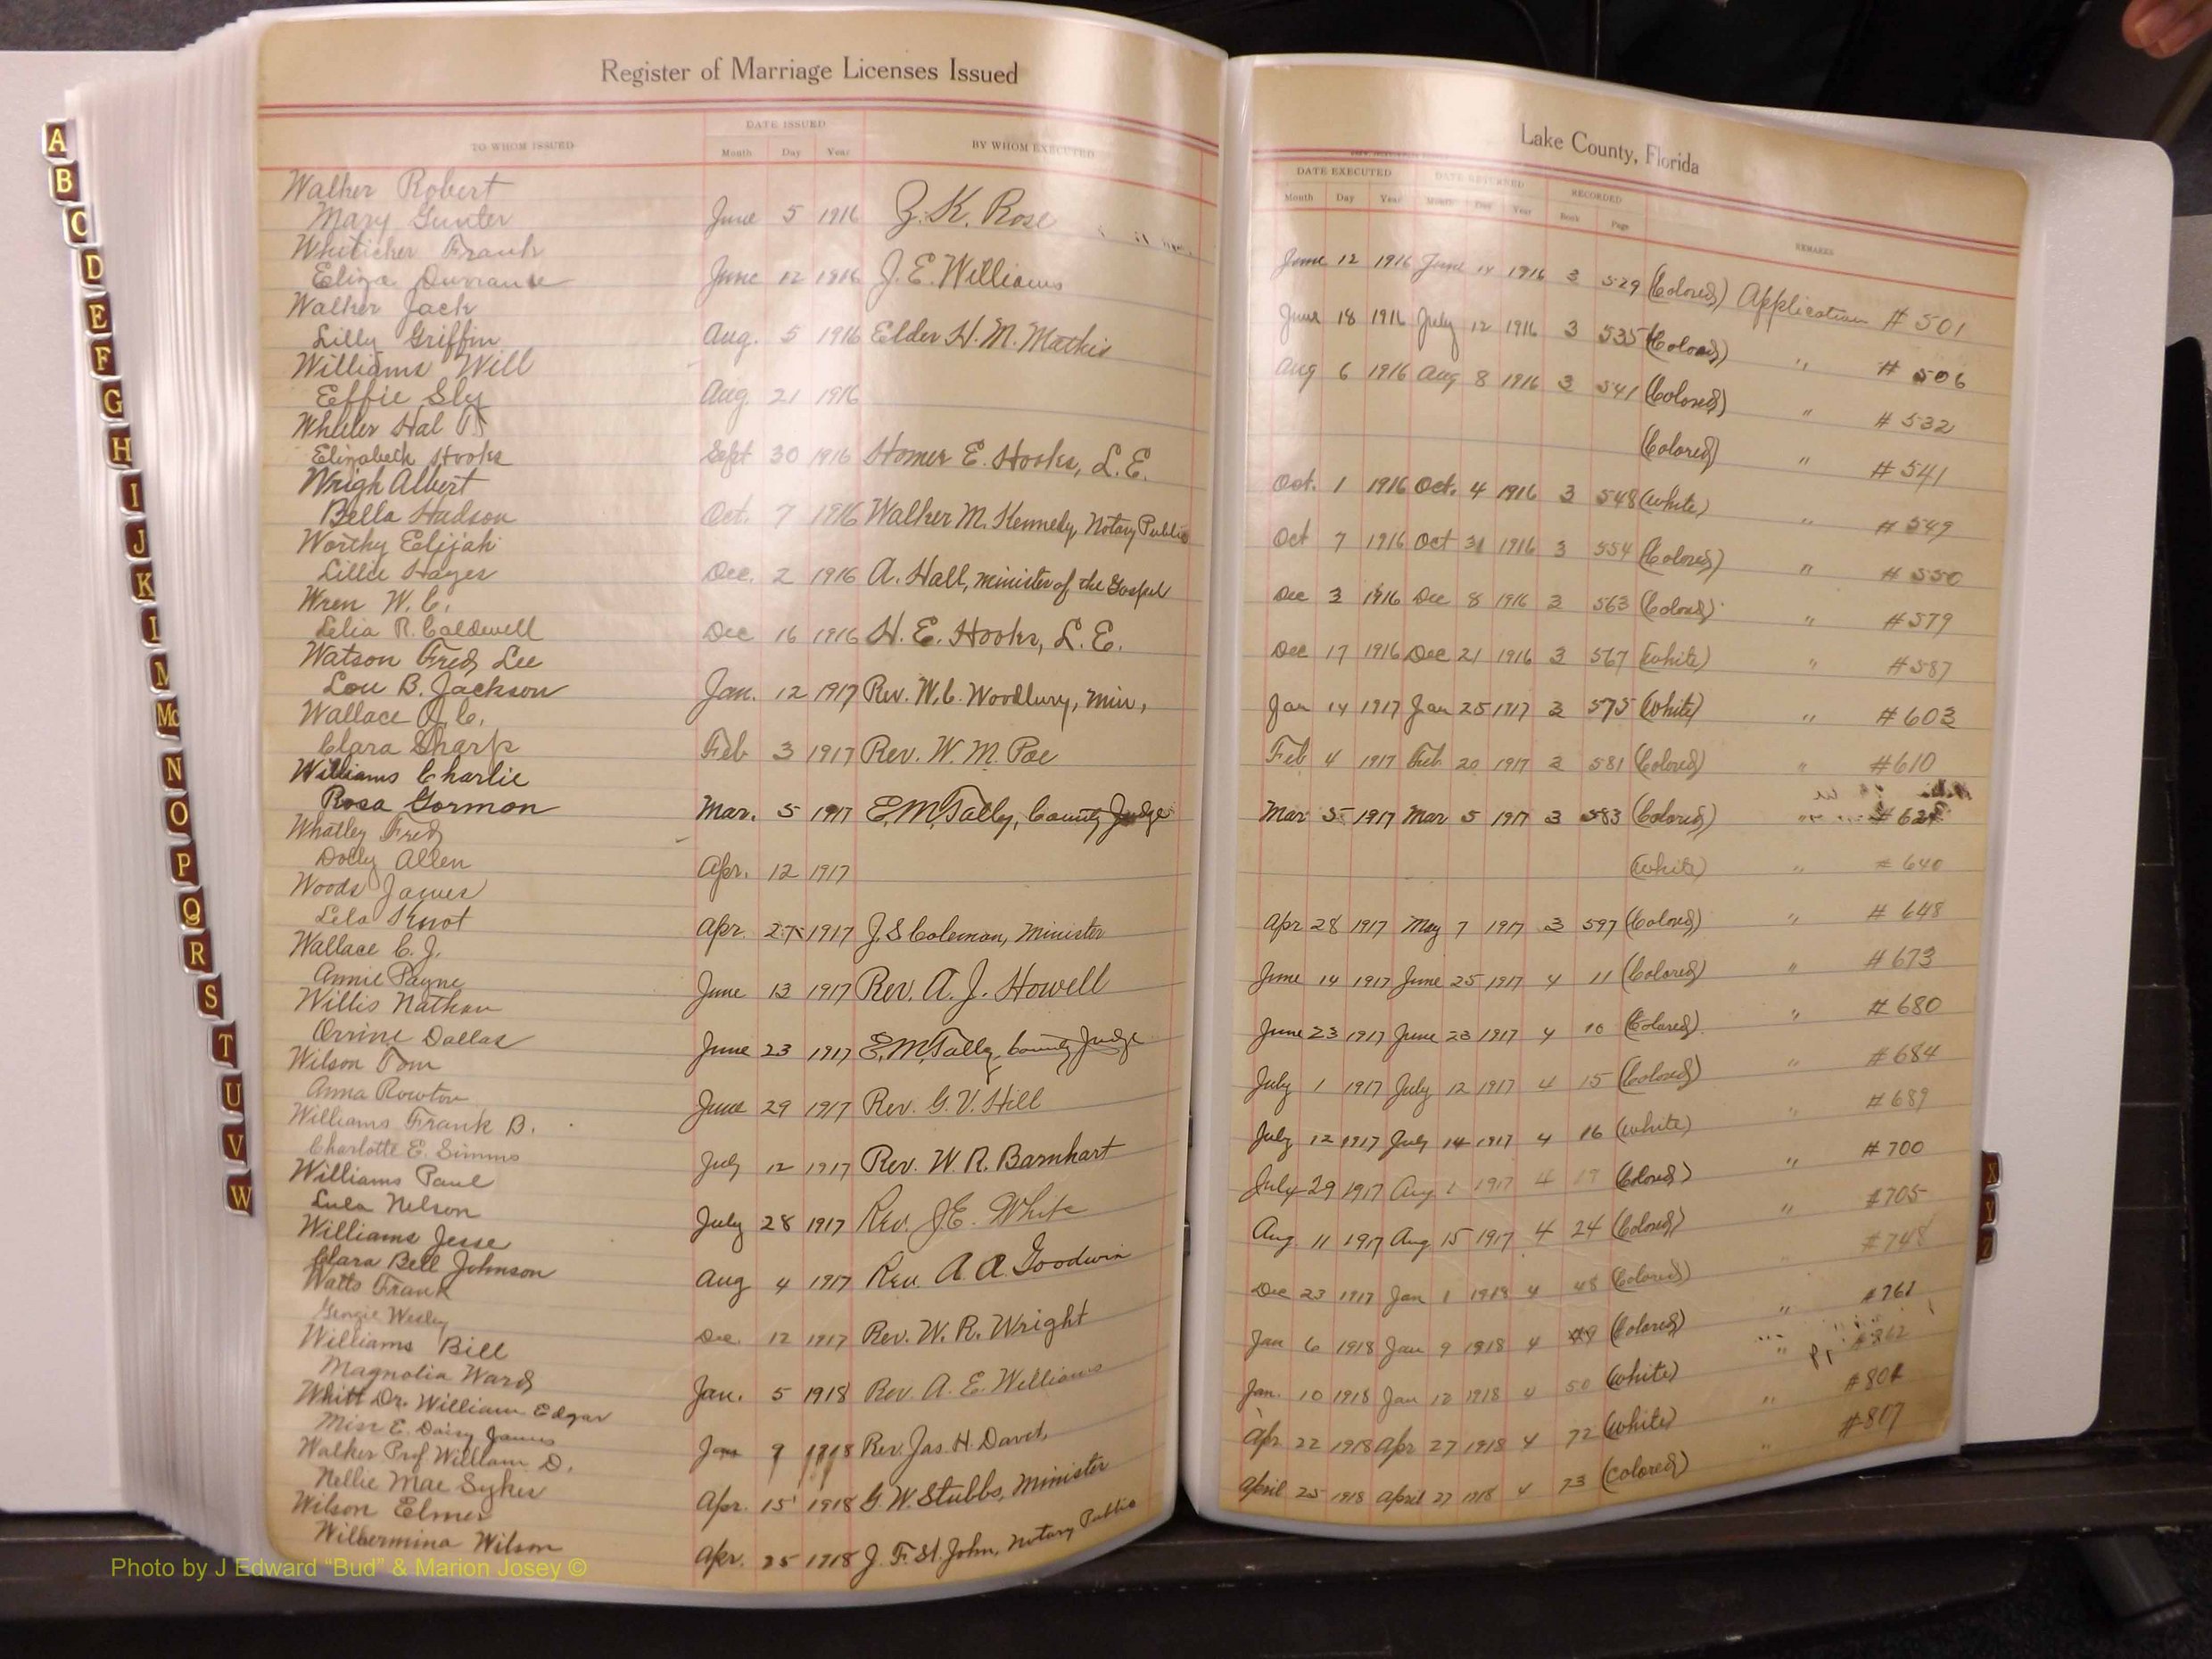 Register of Marriage Licenses Issued
TO WHOM ISSUED
DATE ISSUED
Month Day Year
BY WHOM EXECUTED
Walker Robert
Mary Gunter June 5 1916 Z. K. Rose
Whiticher Frank
Eliza Durranse June 12 1916 J. E. Williams
Walker Jack
Lilly Griffin Aug. 5 1916 Elder H. M. Mathis
Williams Will
Effie Sly Aug. 21 1916
Wheeler Hal
Elizabeth Hooks Sept 30 1916 Homer E. Hooks, L.E.
Wrigh Albert
Bella Hudson Oct. 7 1916 Walker M. Kennedy, Notary Public
Worthy Elijah
Lillie Hayes Dec. 2 1916 A. Hall, minister of the Gospel
Wren W. C.
Lelia R. Caldwell Dec 16 1916 H. E. Hooks, L.E.
Watson Fred Lee
Lou B. Jackson Jan. 12 1917 Rev. W. C. Woodbury, min,
Wallace J. C.
Clara Sharp Feb 3 1917 Rev. W. M. Poe
Williams Charlie
Rosa Gormon Mar. 5 1917 E. M. Tally, County Judge
Whatley Fred
Dolly Allen Apr. 12 1917
Woods James
Lela Knot Apr. 27 1917 J. S. Coleman, Minister
Wallace C. J.
Annie Payne June 13 1917 Rev. A. J. Howell
Willis Nathan
Orrine Dallas June 23 1917 E. M. Tally, County Judge
Wilson Tom
Anna Rowton June 29 1917 Rev. G. V. Hill
Williams Frank B.
Charlotte E. Simms July 12 1917 Rev. W. R. Barnhart
Williams Paul
Lula Nelson July 28 1917 Rev. J. E. White
Williams Jesse
Clara Bell Johnson Aug 4 1917 Rev. A. A. Goodwin
Watts Frank
Georgie Wesley Dec. 12 1917 Rev. W. R. Wright
Williams Bill
Magnolia Ward Jan. 5 1918 Rev. A. E. Williams
Whitt Dr. William Edgar
Miss E. Daisy James Jan 9 1918 Rev. Jas. H. Davet,
Walker Prof William D.
Nellie Mae Sykes Apr. 15 1918 G. W. Stubbs, Minister
Wilson Elmer
Wilhermina Wilson Apr. 25 1918 J. F. St. John, Notary Public
Lake County, Florida
DATE EXECUTED DATE RETURNED RECORDED
Month Day Year Month Day Year Book Page REMARKS
June 12 1916 June 14 1916 3 529 (Colored) Application # 501
June 18 1916 July 12 1916 3 535 (Colored) " # 506
Aug 6 1916 Aug 8 1916 3 541 (Colored) " # 532
(Colored) " # 541
Oct. 1 1916 Oct. 4 1916 3 548 (White) " # 549
Oct 7 1916 Oct 31 1916 3 554 (Colored) " # 550
Dec 3 1916 Dec 8 1916 3 563 (Colored) " # 579
Dec 17 1916 Dec 21 1916 3 567 (White) " # 587
Jan 14 1917 Jan 25 1917 3 575 (White) " # 603
Feb 4 1917 Feb 20 1917 3 581 (Colored) " # 610
Mar 5 1917 Mar 5 1917 3 583 (Colored) "
(White) " # 640
Apr 28 1917 May 7 1917 3 597 (Colored) " # 648
June 14 1917 June 25 1917 4 11 (Colored) " # 673
June 23 1917 June 23 1917 4 10 (Colored) " # 680
July 1 1917 July 12 1917 4 15 (Colored) " # 684
July 12 1917 July 14 1917 4 16 (White) " # 689
July 29 1917 Aug 1 1917 4 19 (Colored) " # 700
Aug 11 1917 Aug 15 1917 4 24 (Colored) " # 705
Dec 23 1917 Jan 1 1918 4 48 (Colored) " # 748
Jan 6 1918 Jan 9 1918 4 (Colored) " # 761
Jan. 10 1918 Jan 12 1918 4 50 (White) "
Apr 22 1918 Apr 27 1918 4 72 (White) " # 804
April 25 1918 April 27 1918 4 73 (Colored) " # 807
A
B
C
D
E
F
G
H
I
J
K
L
M
Mc
N
O
P
Q
R
S
T
U
V
W
X
Y
Z
Photo by J Edward “Bud” & Marion Josey ©